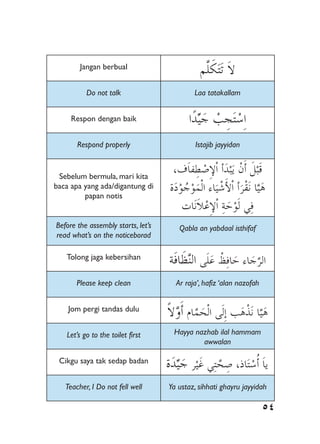 Jangan berbual
لَا تَتَكَلَّمْ
Do not talk
Laa tatakallam
Respon dengan baik
اِسْتَجِبْ جَيِّدًا
Respond properly
Istajib jayyidan
Sebelum bermula, mari kita
baca apa yang ada/digantung di
papan notis
قَبْلَ أَنْ يَبْدَأَ الإِصْطِفَاف،
هَيَّا نَقْرَأَ الأَشْيَاء الْمَوْجُوْدَة
فِي لَوْحَة الإِعْلَانَات
Before the assembly starts, let's
read what's on the noticeborad
Qabla an yabdaal isthifaf
Tolong jaga kebersihan
الرَّجَاء حَافِظْ عَلَى النَّظَافَة
Please keep clean
Ar raja', hafiz 'alan nazofah
Jom pergi tandas dulu
هَيَّا نَذْهَب إِلَى الْحَمَّام أَوَّلاً
Let's go to the toilet first
Hayya nazhab ilal hammam
awwalan
Cikgu saya tak sedap badan
يَا أُسْتَاذ، صِحَّتِي غَيْر جَيِّدَة
Teacher, I Do not fell well
Ya ustaz, sihhati ghayru jayyidah
٥٤